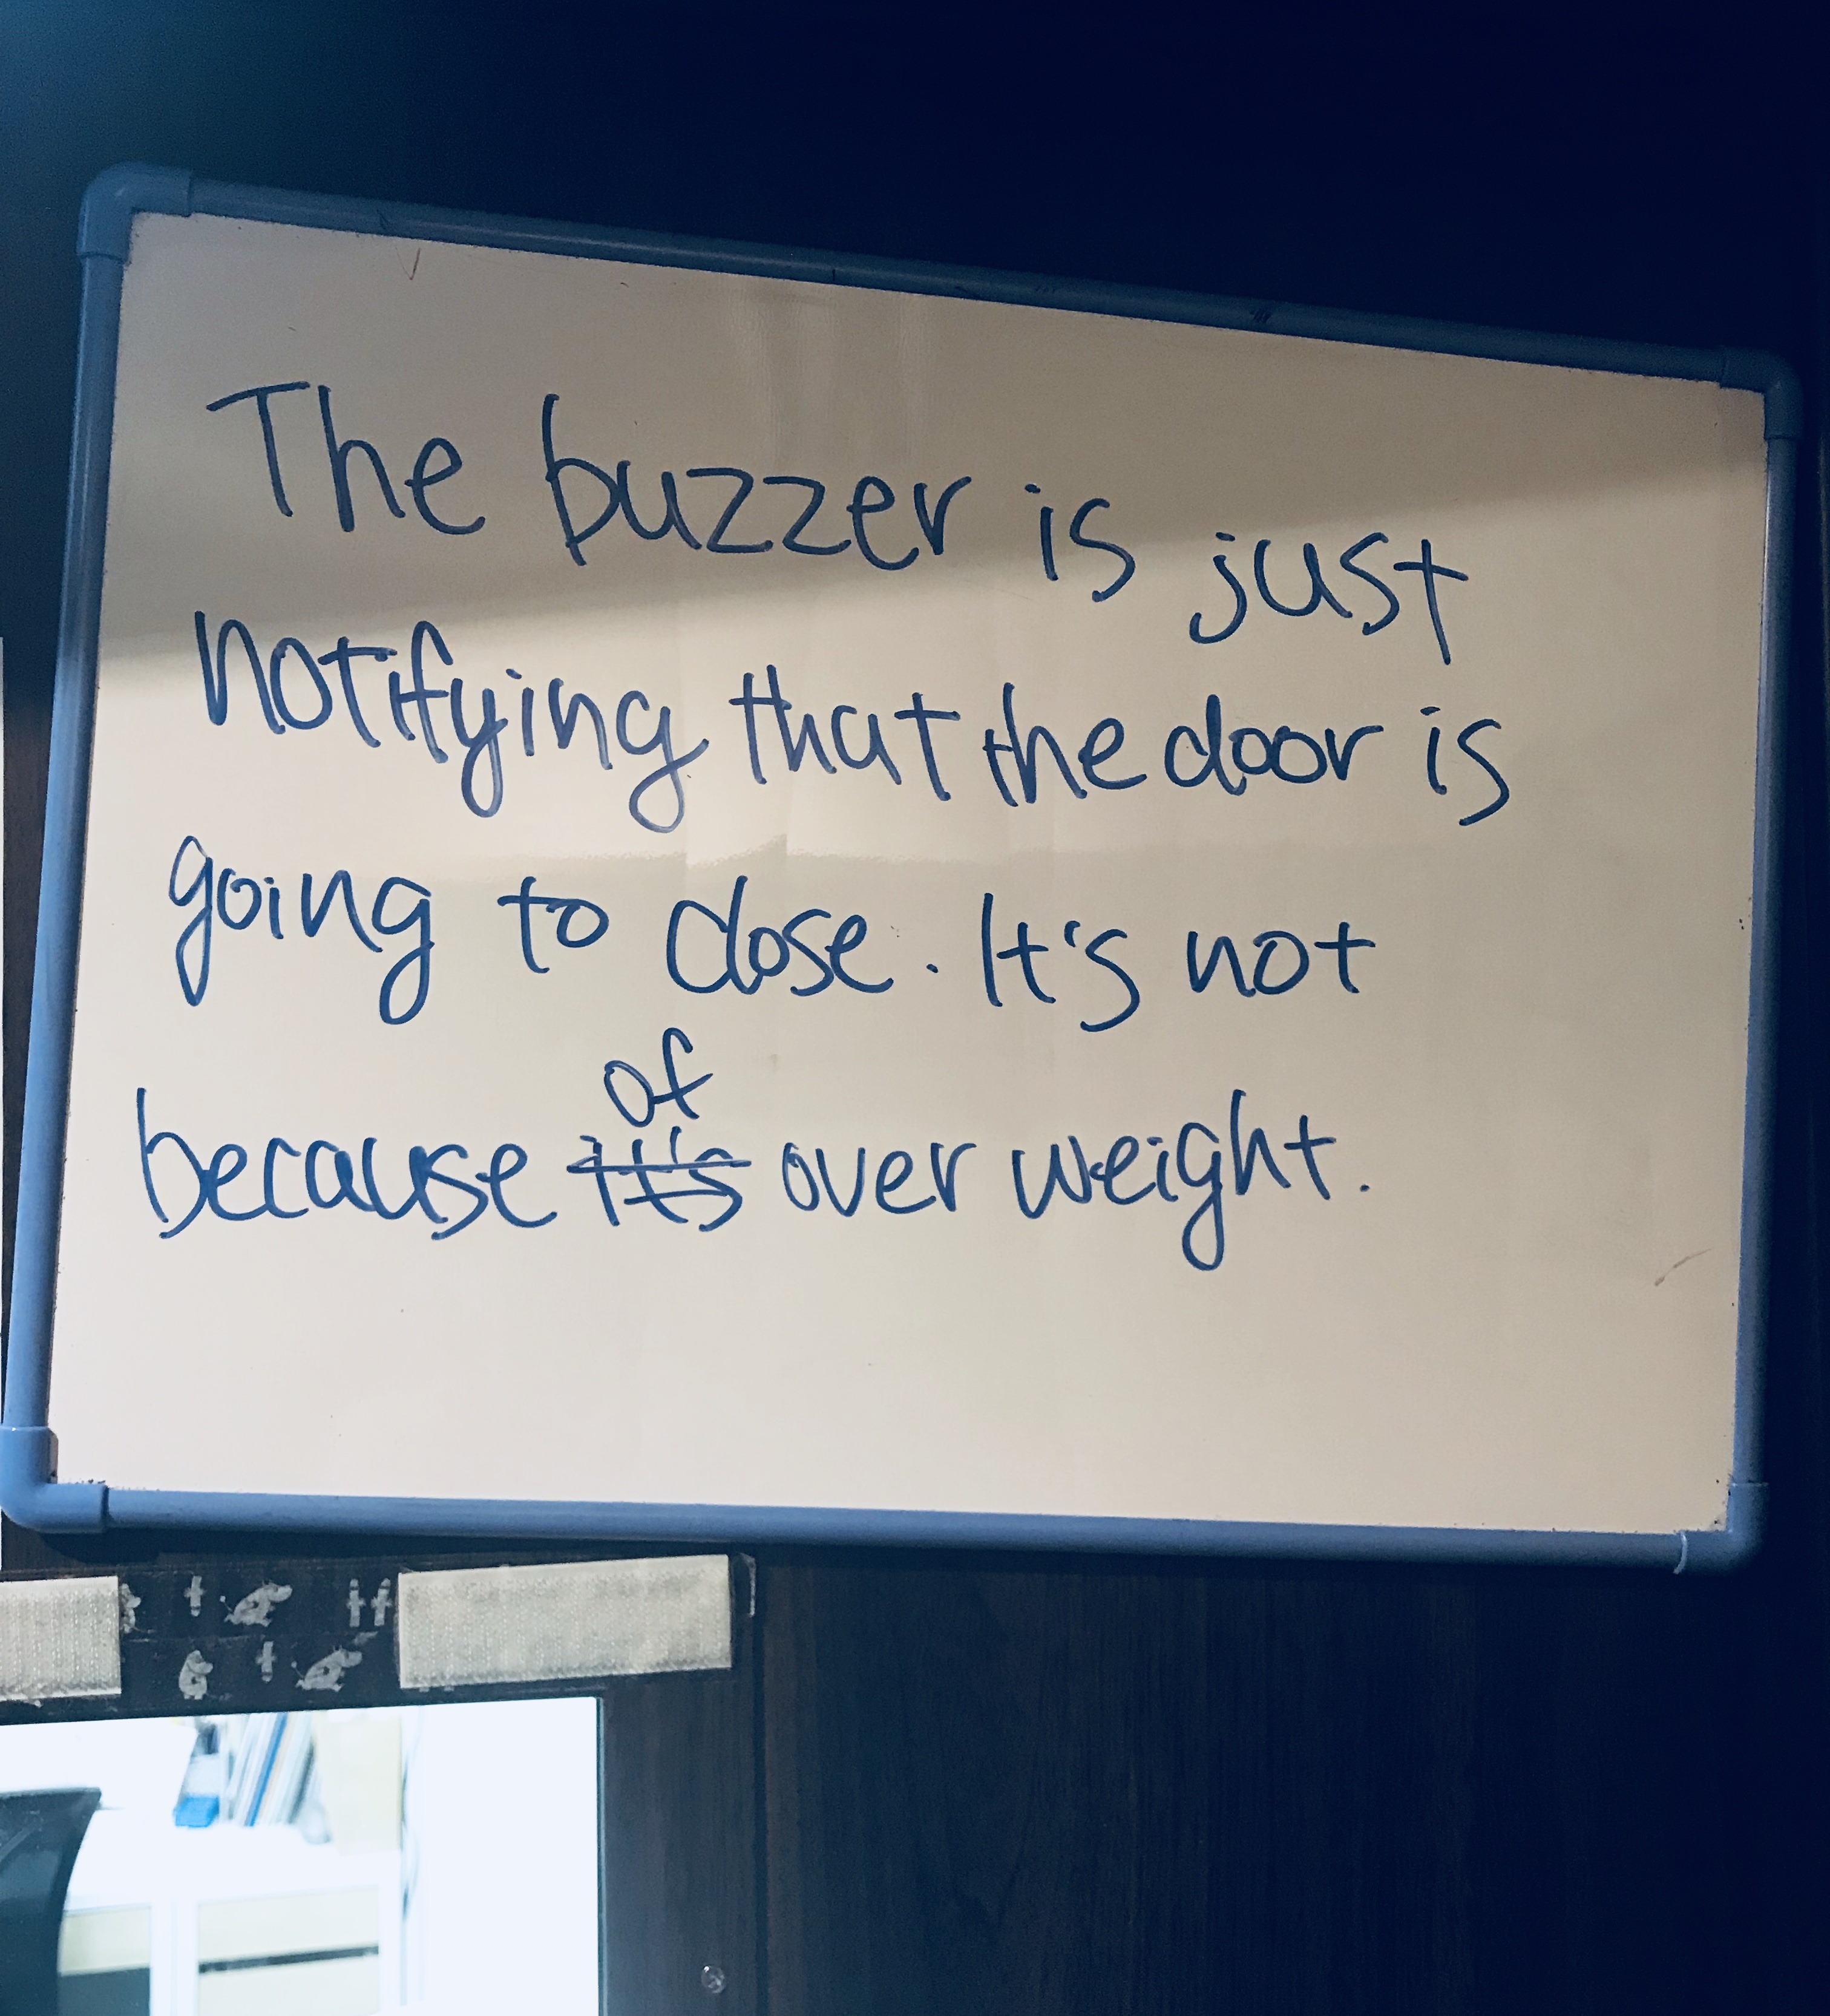 The buzzer is just
notifying that the door is
going to close. It's not
of
because it's over weight.